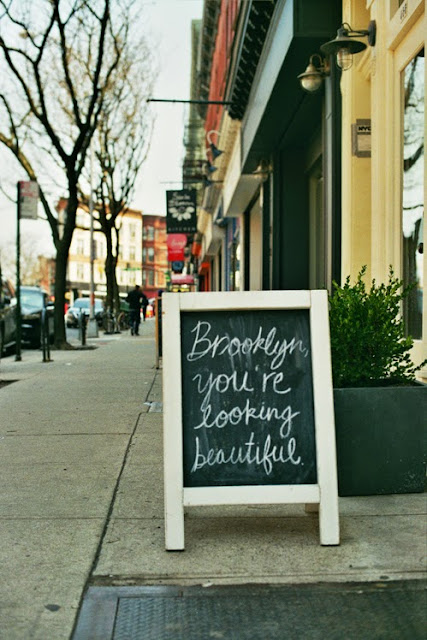 Brooklyn,
you're
looking
beautiful.
KITCHEN